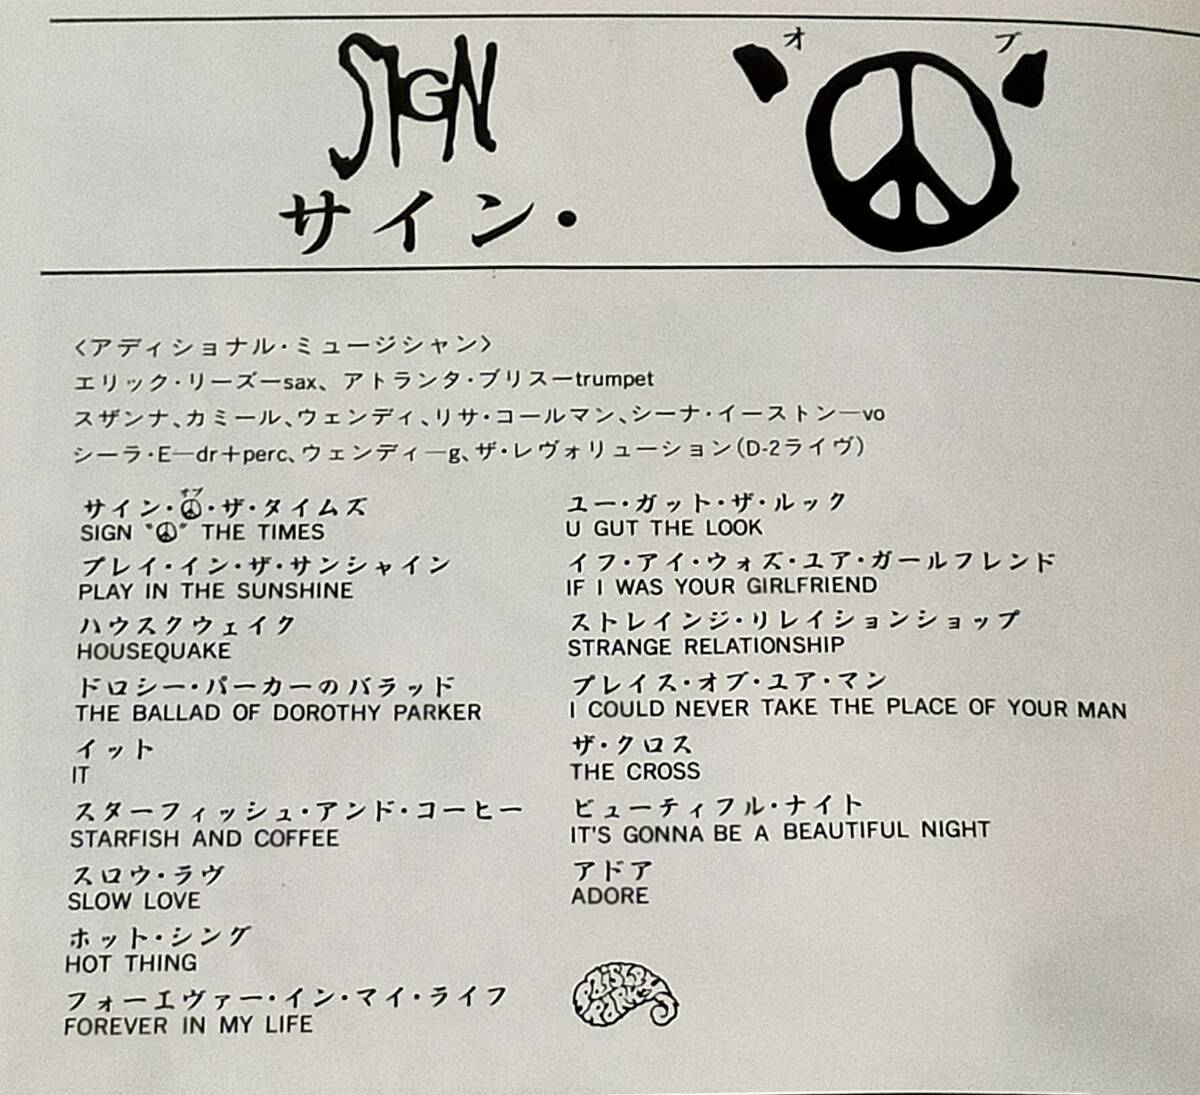 SIGN
オ ブ
サイン・
〈アディショナル・ミュージシャン〉
エリック・リーズ―sax、アトランタ・ブリス―trumpet
スザンナ、カミール、ウェンディ、リサ・コールマン、シーナ・イーストン―vo
シーラ・E―dr+perc、ウェンディ―g、ザ・レヴォリューション(D-2ライヴ)
サイン・☮・ザ・タイムズ
オブ
SIGN "☮" THE TIMES
プレイ・イン・ザ・サンシャイン
PLAY IN THE SUNSHINE
ハウスクウェイク
HOUSEQUAKE
ドロシー・パーカーのバラッド
THE BALLAD OF DOROTHY PARKER
イット
IT
スターフィッシュ・アンド・コーヒー
STARFISH AND COFFEE
スロウ・ラヴ
SLOW LOVE
ホット・シング
HOT THING
フォーエヴァー・イン・マイ・ライフ
FOREVER IN MY LIFE
ユー・ガット・ザ・ルック
U GUT THE LOOK
イフ・アイ・ウォズ・ユア・ガールフレンド
IF I WAS YOUR GIRLFRIEND
ストレインジ・リレイションショップ
STRANGE RELATIONSHIP
プレイス・オブ・ユア・マン
I COULD NEVER TAKE THE PLACE OF YOUR MAN
ザ・クロス
THE CROSS
ビューティフル・ナイト
IT'S GONNA BE A BEAUTIFUL NIGHT
アドア
ADORE
PAISLEY
PARK